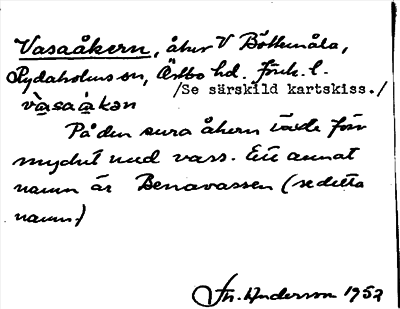 Vasaåkern, åker V Böthmåla,
Rydaholms sn, Östbo hd. Jönk. l.
/Se särskild kartskiss./
vasaåkən
På den sura åkern växte för
mycket med vass. Ett annat
namn är Benavassen (se detta
namn)
Fr. Anderson 1952